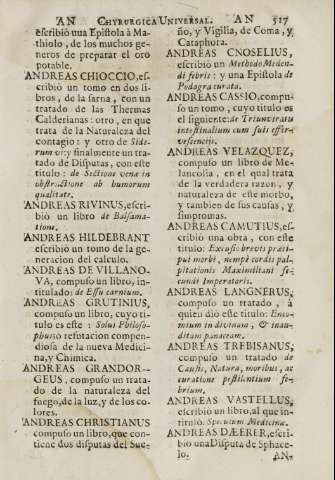 AN CHYRURGICA UNIVERSAL. AN 517
escribiò una Epistola à Ma-
thiolo, de los muchos ge-
neros de preparar el oro
potable.
ANDREAS CHIOCCIO, es-
cribiò un tomo en dos li-
bros, de la sarna, con un
tratado de las Thermas
Calderianas: otro, en que
trata de la Naturaleza del
contagio: y otro de Side-
rum vi: y finalmente un tra-
tado de Disputas, con este
titulo: de Sectione venæ in
obstructione ab humorum
qualitate.
ANDREAS RIVINUS, escri-
biò un libro de Balsama-
tione.
ANDREAS HILDEBRANT
escribiò un tomo de la ge-
neracion del calculo.
ANDREAS DE VILLANO-
VA, compuso un libro, in-
titulado: de Essu carnium.
ANDREAS GRUTINIUS,
compuso un libro, cuyo ti-
tulo es este: Solus Philoso-
phus: ò refutacion compen-
diosa de la nueva Medici-
na, y Chimica.
ANDREAS GRANDOR-
GEUS, compuso un trata-
do de la naturaleza del
fuego, de la luz, y de los co-
lores.
ANDREAS CHRISTIANUS
compuso un libro, que con-
tiene dos disputas del Sue-
ño, y Vigilia, de Coma, y
Cataphora.
ANDREAS CNOSELIUS,
escribiò un Methodo Meden-
di febris: y una Epistola de
Podagra curata.
ANDREAS CASSIO, compu-
so un tomo, cuyo titulo es
el siguiente: de Triumviratu
intestinalium cum suis effer-
vescencijs.
ANDREAS VELAZQUEZ,
compuso un libro de Me-
lancolia, en el qual trata
de la verdadera razon, y
naturaleza de este morbo,
y tambien de sus causas, y
simptomas.
ANDREAS CAMUTIUS, es-
cribiò una obra, con este
titulo: Excusis brevis præci-
pui morbi, nempè cordis pal-
pitationis Maximiliani se-
cundi Imperatoris.
ANDREAS LANGNERUS,
compuso un tratado, à
quien diò este titulo: Enco-
mium in divinam, & inau-
ditam panaceam.
ANDREAS TREBISANUS,
compuso un tratado de
Causis, Natura, moribus, ac
curatione pestilentium fe-
brium.
ANDREAS VASTELLUS,
escribiò un libro, al que in-
titulò. Speculum Medicinæ.
ANDREAS DÆERER, escri-
biò una Disputa de Sphace-
lo. AN-